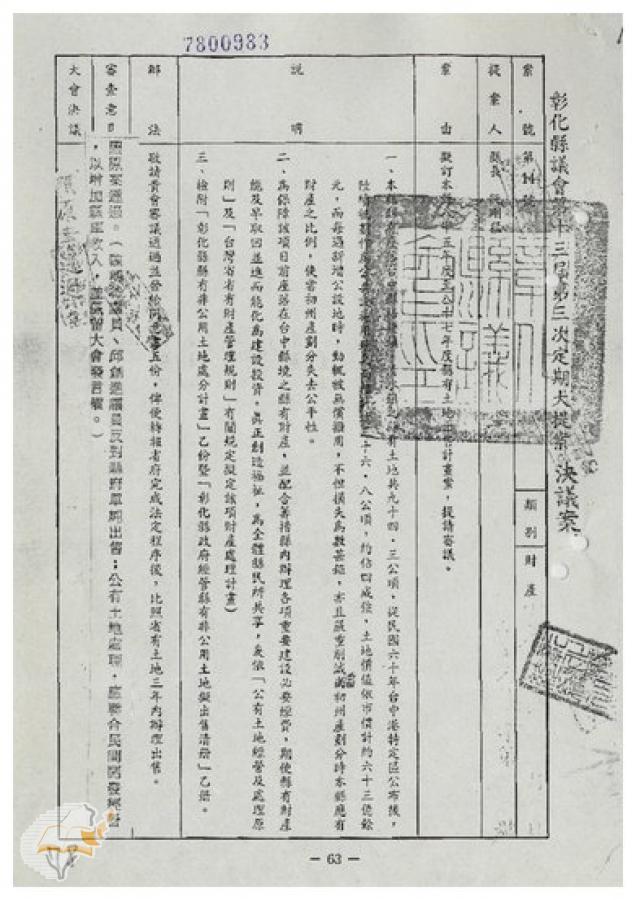 7800983
彰化縣議會第十三屆第三次定期大提案 決議案
案號 第14號 類別 財產
提案人 縣長
案由 擬訂本 五年度至八十七年度縣有土地 計畫案，提請審議。
說明
一、本 有土地共九十四．三公頃，從民國六十年台中港特定區公布後，
陸 十六．八公頃，約佔四成強，土地價值依市價計約六十三億餘
元，而每遇新增公設地時，動輒被無償撥用，不但損失為數甚鉅，亦且嚴重削減 初州產劃分時本縣應有
財產之比例，使當初州產劃分失去公平性。
二、為保障該項目前座落在台中縣境之縣有財產，並配合籌措縣內辦理各項重要建設必要經費，期使縣有財產
能及早取回並進而能化為建設投資，真正創造福祉，為全體縣民所共享，爰依「公有土地經營及處理原
則」及「台灣省省有財產管理規則」有關規定擬定該項財產處理計畫）
三、檢附「彰化縣縣有非公用土地處分計畫」乙份暨「彰化縣政府經管縣有非公用土地擬出售清冊」乙冊。
辦法 敬請貴會審議通過並發給同意書五份，俾便轉報省府完成法定程序後，比照省有土地三年內辦理出售。
審查意見 照原案通過。（ 議員、邱創進議員反對縣府單純出售；公有土地處理，應聯合民間開發
，以增加縣庫收入，並保留大會發言權。）
大會決議
— 63 —